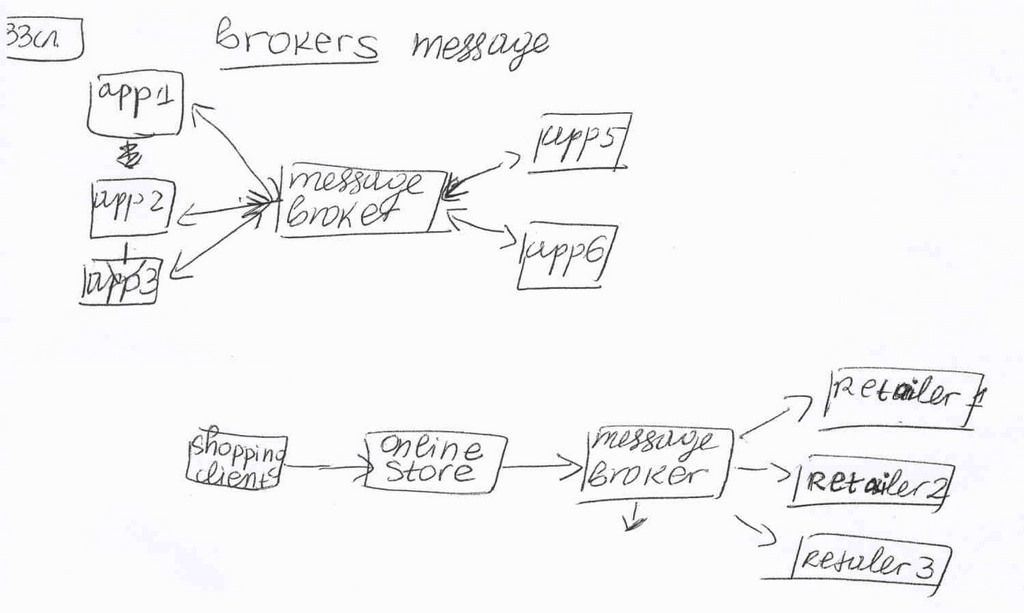 33сл.
brokers message
app1
app2
app3
message
broker
app5
app6
shopping
clients
online
store
message
broker
Retailer 1
Retailer 2
Retailer 3